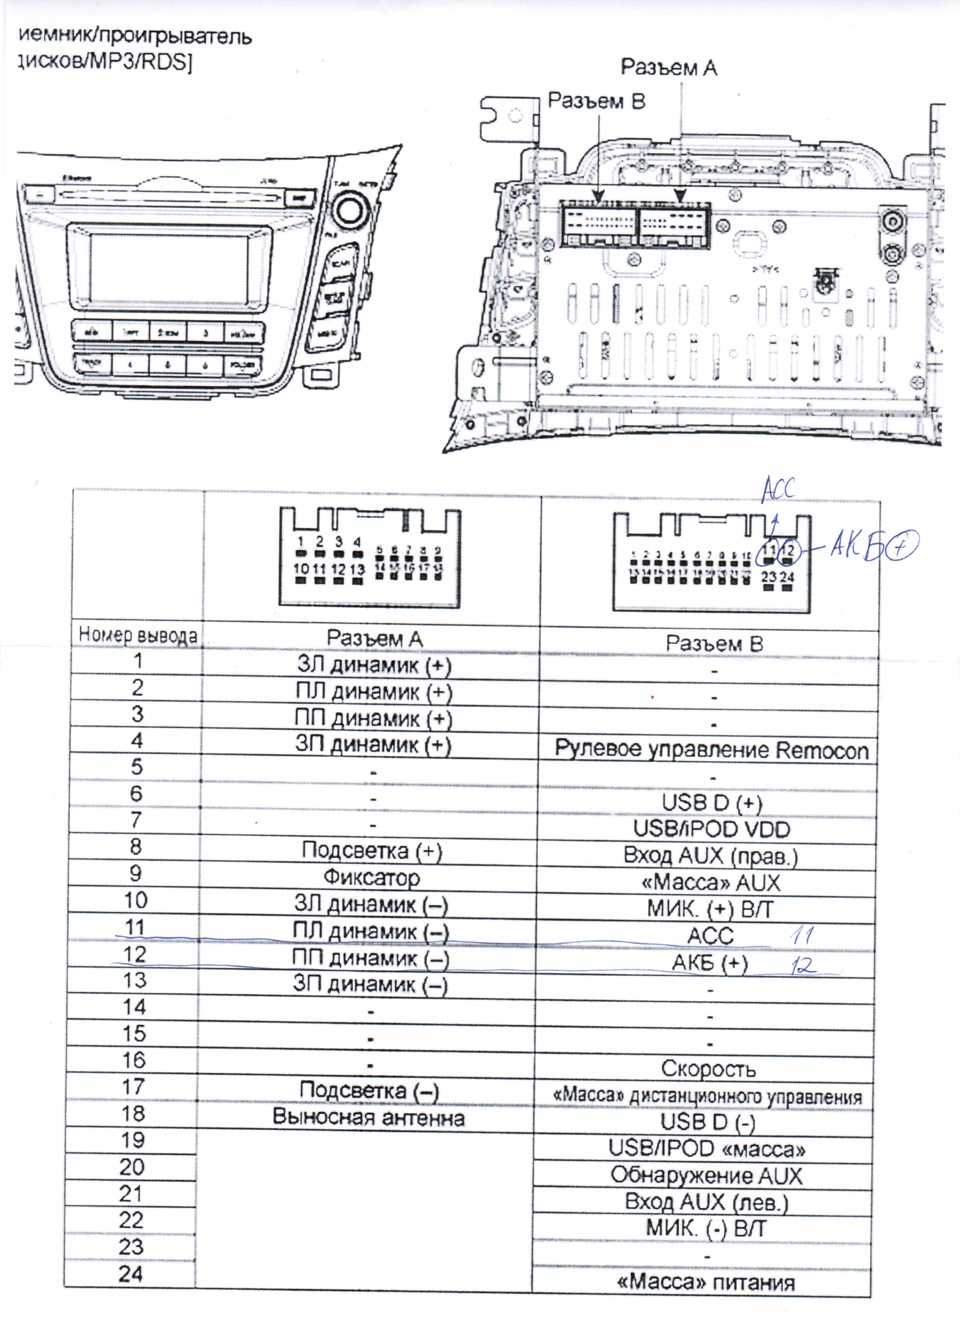 иемник/проигрыватель
дисков/MP3/RDS]
Разъем A
Разъем B
SCAN
3
4
5
6
TRACK
FOLDER
ACC
АКБ +
1 2 3 4
5 6 7 8 9
10 11 12 13 14 15 16 17 18
1 2 3 4 5 6 7 8 9 10 11 12
13 14 15 16 17 18 19 20 21 22 23 24
Номер вывода Разъем A Разъем B
1 ЗЛ динамик (+) -
2 ПЛ динамик (+) -
3 ПП динамик (+) -
4 ЗП динамик (+) Рулевое управление Remocon
5 - -
6 - USB D (+)
7 - USB/iPOD VDD
8 Подсветка (+) Вход AUX (прав.)
9 Фиксатор «Масса» AUX
10 ЗЛ динамик (–) МИК. (+) B/T
11 ПЛ динамик (–) ACC 11
12 ПП динамик (–) АКБ (+) 12
13 ЗП динамик (–) -
14 - -
15 - -
16 - Скорость
17 Подсветка (–) «Масса» дистанционного управления
18 Выносная антенна USB D (-)
19 USB/IPOD «масса»
20 Обнаружение AUX
21 Вход AUX (лев.)
22 МИК. (-) B/T
23 -
24 «Масса» питания